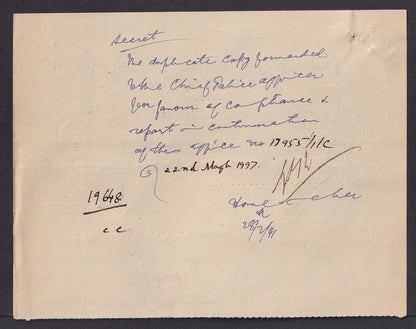 Secret
The duplicate copy forwarded
to the Chief Police officer
for favour of compliance &
report in continuation
of this office no 17955/1/C
22nd Magh 1997.
19648
Home
c c
28/2/41